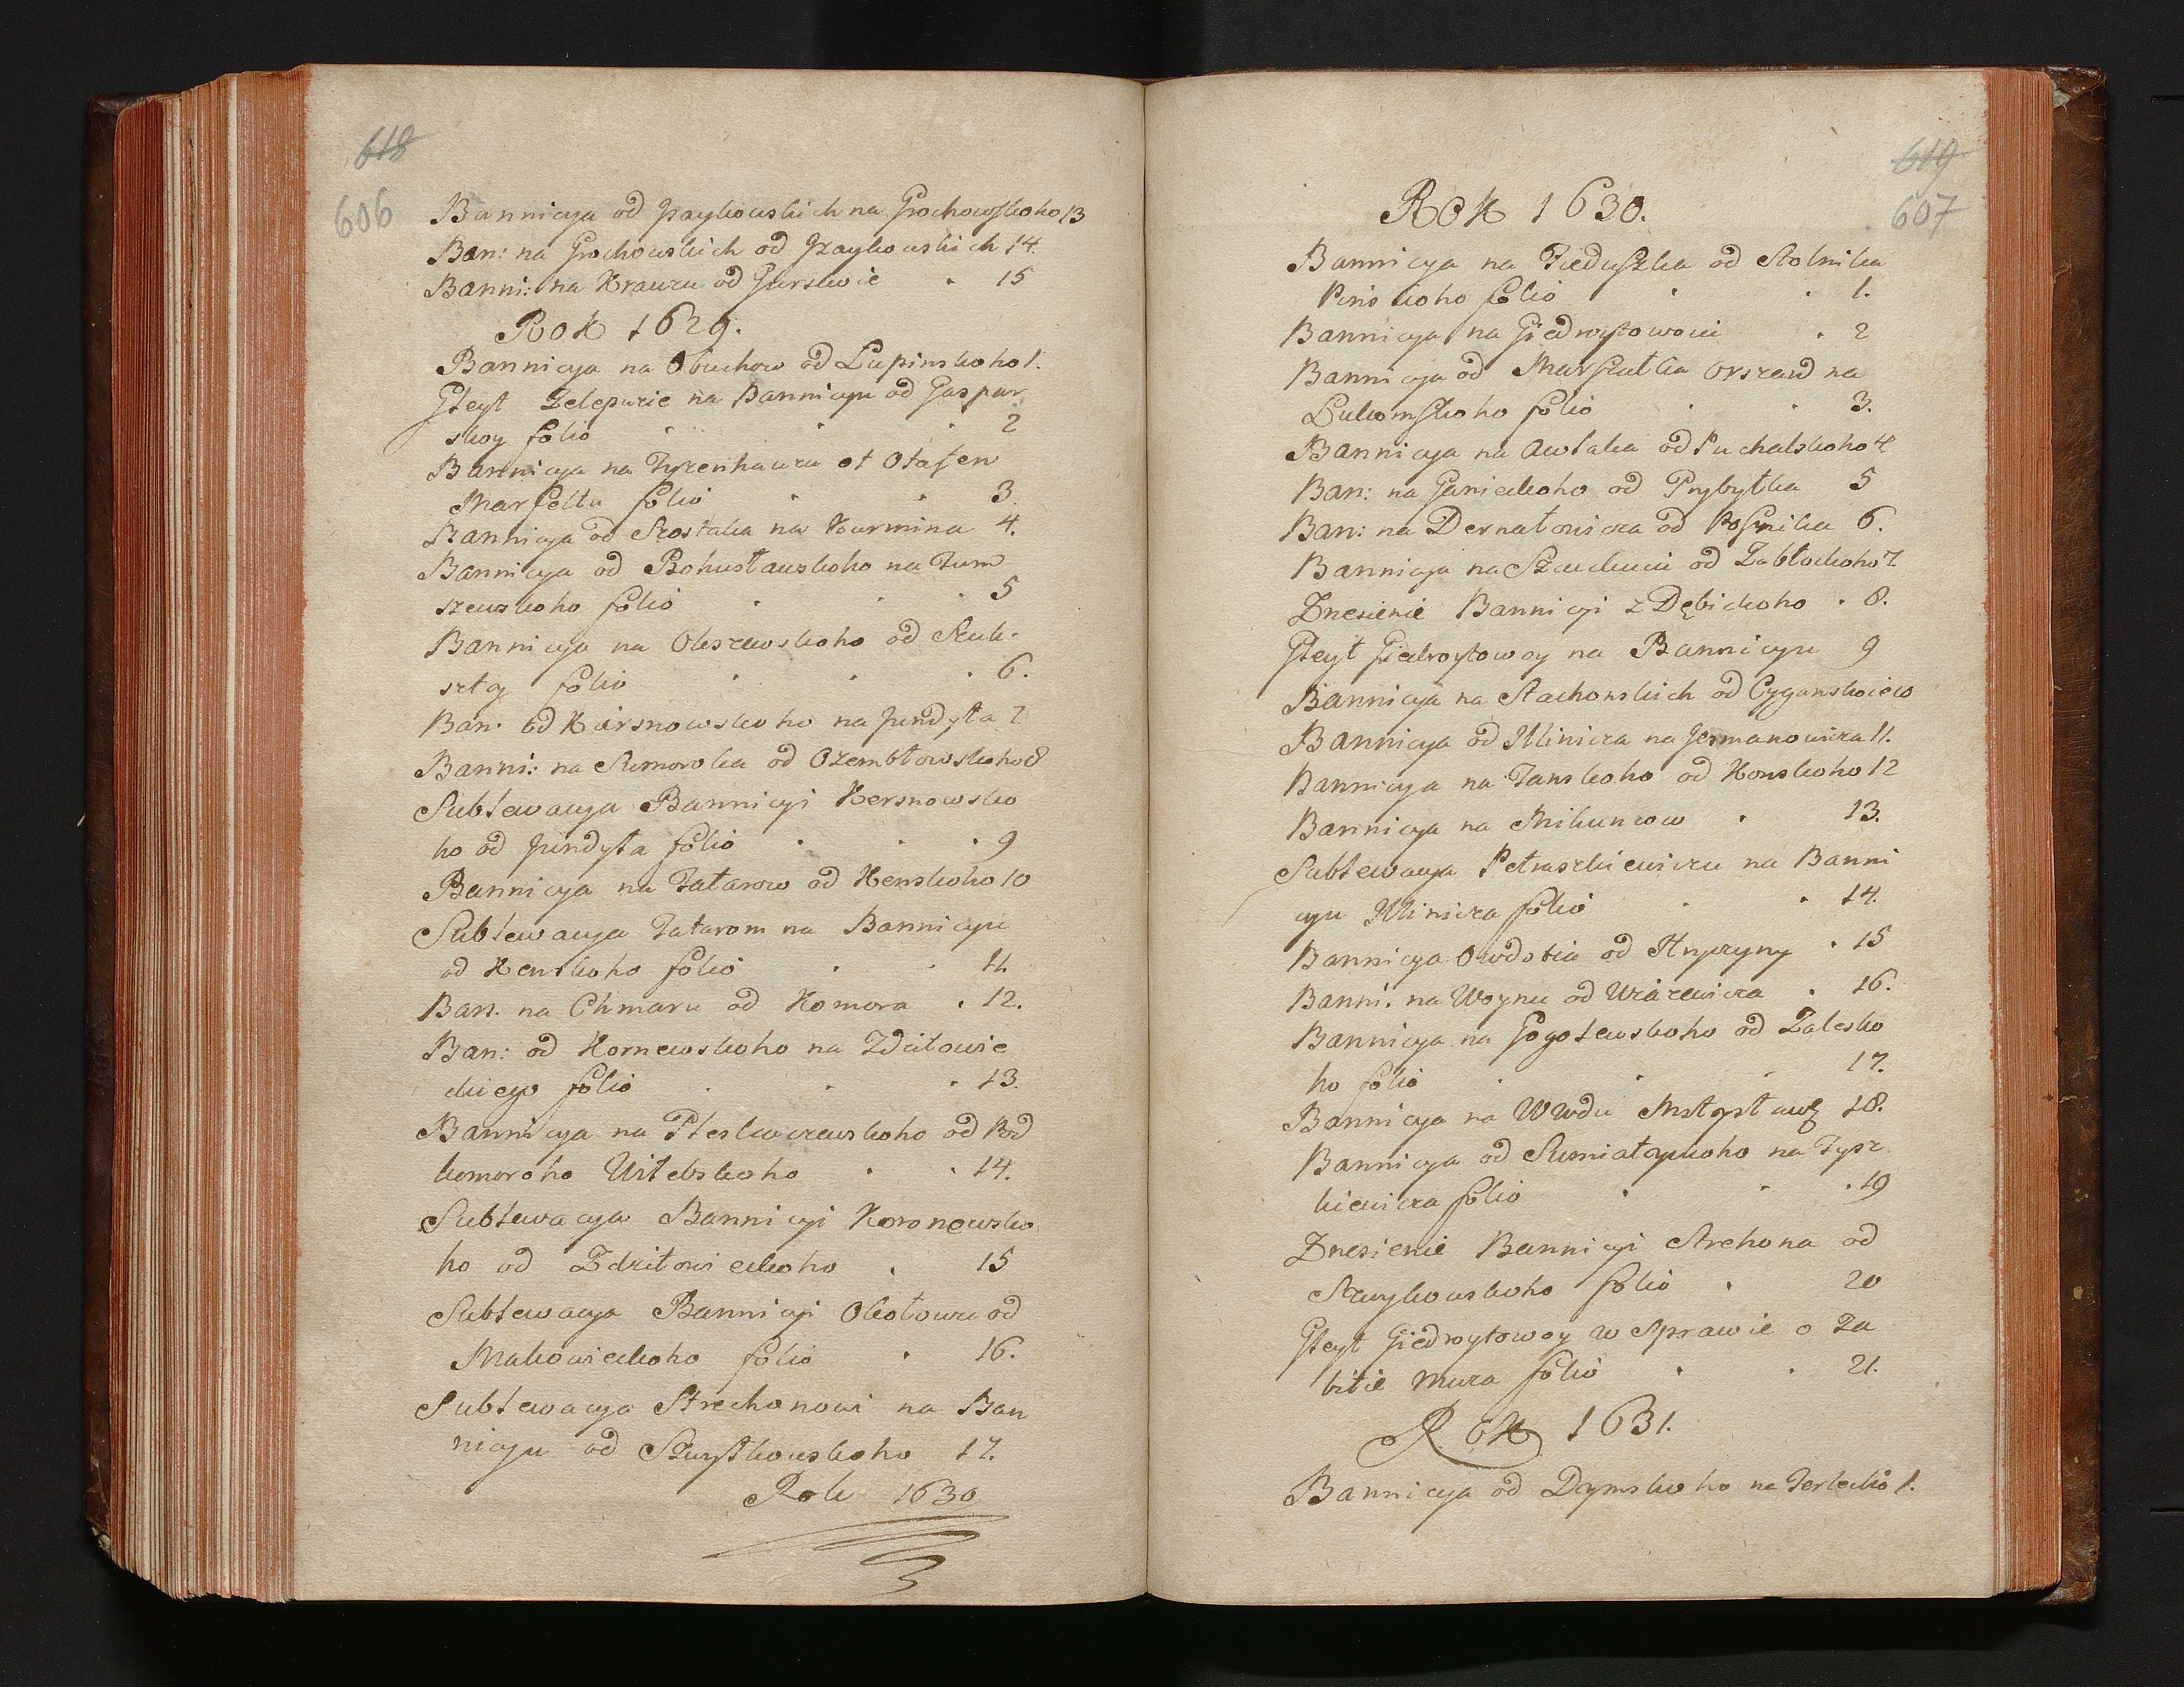 618
606
Bannicya od Graykowskich na Grochowskoho 13
Ban: na Grochowskich od Graykowskich 14.
Banni: na Krauzu od Gurskoie . 15
Rok 1629.
Bannicya na Obuchow od Lupinskoho 1.
Gleyt Zelepuzie na Bannicyu od Gaspar
skoy folio . . . 2
Bannicya na Tyzenhauzu et Otafen
Marfelta folio . . 3.
Bannicya od Szostaka na Kurmina 4.
Bannicya od Bohusławskoho na Tum
szewskoho folio . . . 5
Bannicya na Olszewskoho od
szty folio . . . 6.
Ban: od Kiersnowskoho na Jundyła 7
Banni: na Sumoroka od Ozembłowskoho 8
Sublewacya Bannicyi Kersnowsko
ho od Jundyła folio . . . 9
Bannicya na Tatarow od Kenskoho 10
Sublewacya Tatarom na Bannicyu
od Kenskoho folio . . 11.
Ban. na Chmaru od Komora . 12.
Ban: od Kornewskoho na Zditowie
ckiego folio . . . 13.
Bannicya na Pleskaczewskoho od Pod
komoroho Witebskoho . . 14.
Sublewacya Bannicyi Koronewsko
ho od Zdzitowieckoho . 15
Sublewacya Bannicyi Okołowu od
Makowieckoho folio . 16.
Sublewacya Strechonowi na Ban
nicyu od Szuyskowskoho 17.
Rok 1630
619
607
Rok 1630.
Bannicya na Fieduszka od Stolnika
Pinskoho folio . . 1.
Bannicya na Giedroytowou . 2
Bannicya od Marszałka Orszansk na
Lukomskoho folio . . 3.
Bannicya na Awłaka od Puchalskoho 4
Ban: na Ganieckoho od Prybytka 5
Ban: na Dernatowicza od Posnika 6.
Bannicya na od Zabłockoho 7
Znesienie Bannicyi z Dębickoho . 8.
Gleyt Giedroytowoy na Bannicyu 9
Bannicya na Stachowskich od Cyganskoiew
Bannicya od Ilinicza na Jermanowicza 11.
Bannicya na Tanskoho od Konskoho 12
Bannicya na Mikuncow . 13.
Sublewacya Petraszkiewiczu na Banni
cyu Ilinicza folio . . 14.
Bannicya Owdotia od Hnyzyny . 15
Banni. na Woynu od Wiazewicza . 16.
Bannicya na Gogolewskoho od Zalesko
ho folio . . . 17.
Bannicya na Wwdu Mstysławs 18.
Bannicya od Sumiatyckoho na Tysz
kiewicza folio . . . 19
Znesienie Bannicyi Strehona od
Szuykowskoho folio . 20
Gleyt Giedroytowoy w Sprawie o Za
bitie Muza folio . . 21.
Rok 1631.
Bannicya od Dymskoho na Terlecko 1.